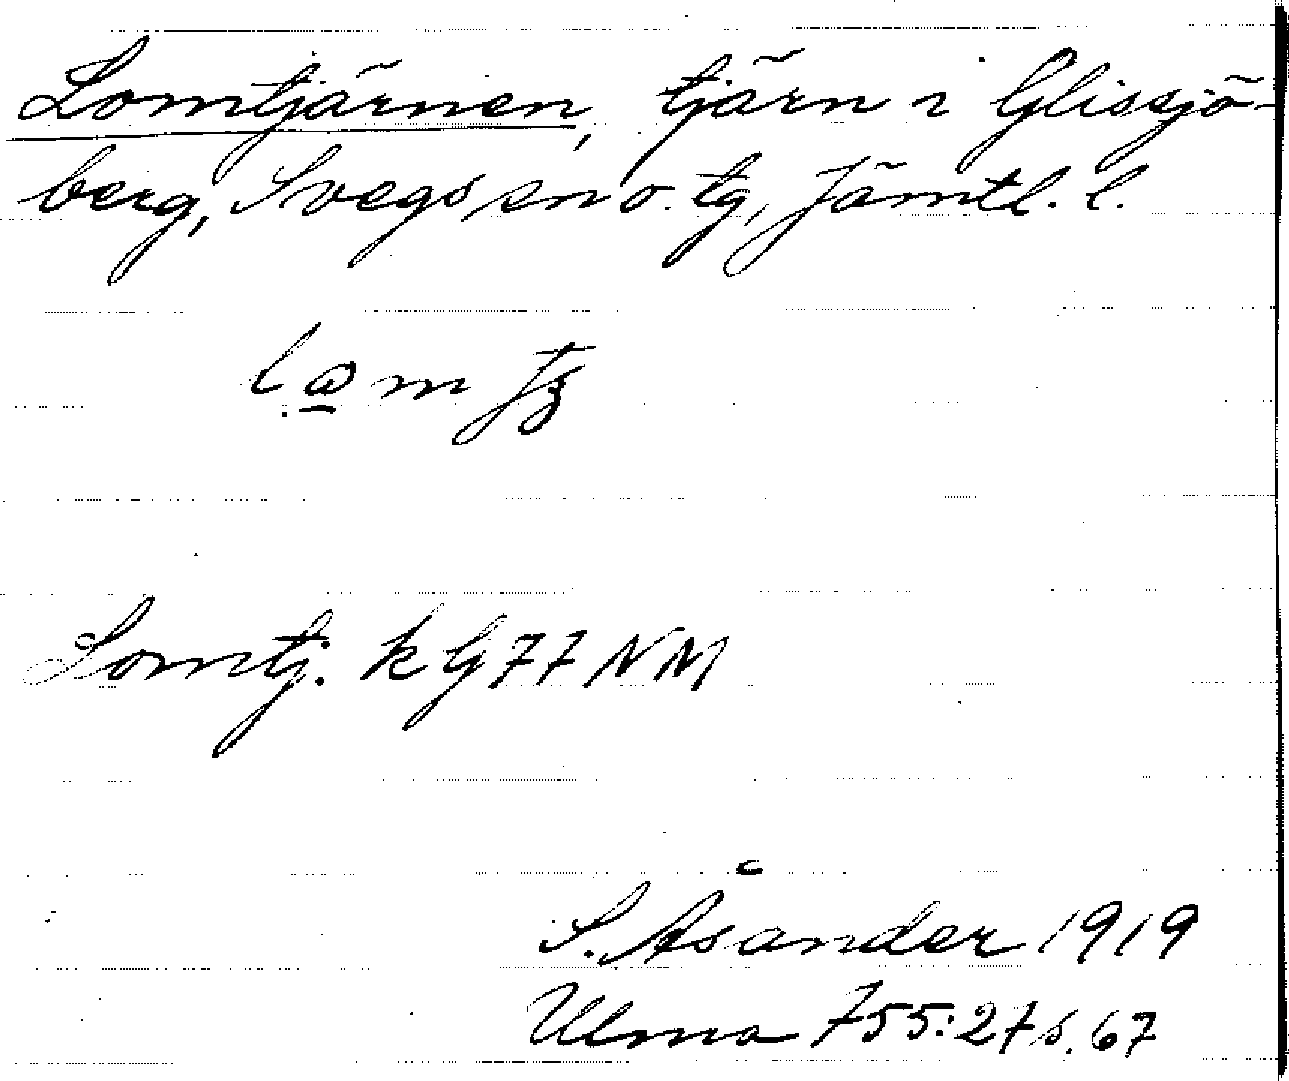 Lomtjärnen, tjärn i Glissjö-
berg, Svegs sn o. tg, Jämtl. l.
Lomtj. k G 77 NM
S. Åsander 1919
Ulma 755:27 s. 67